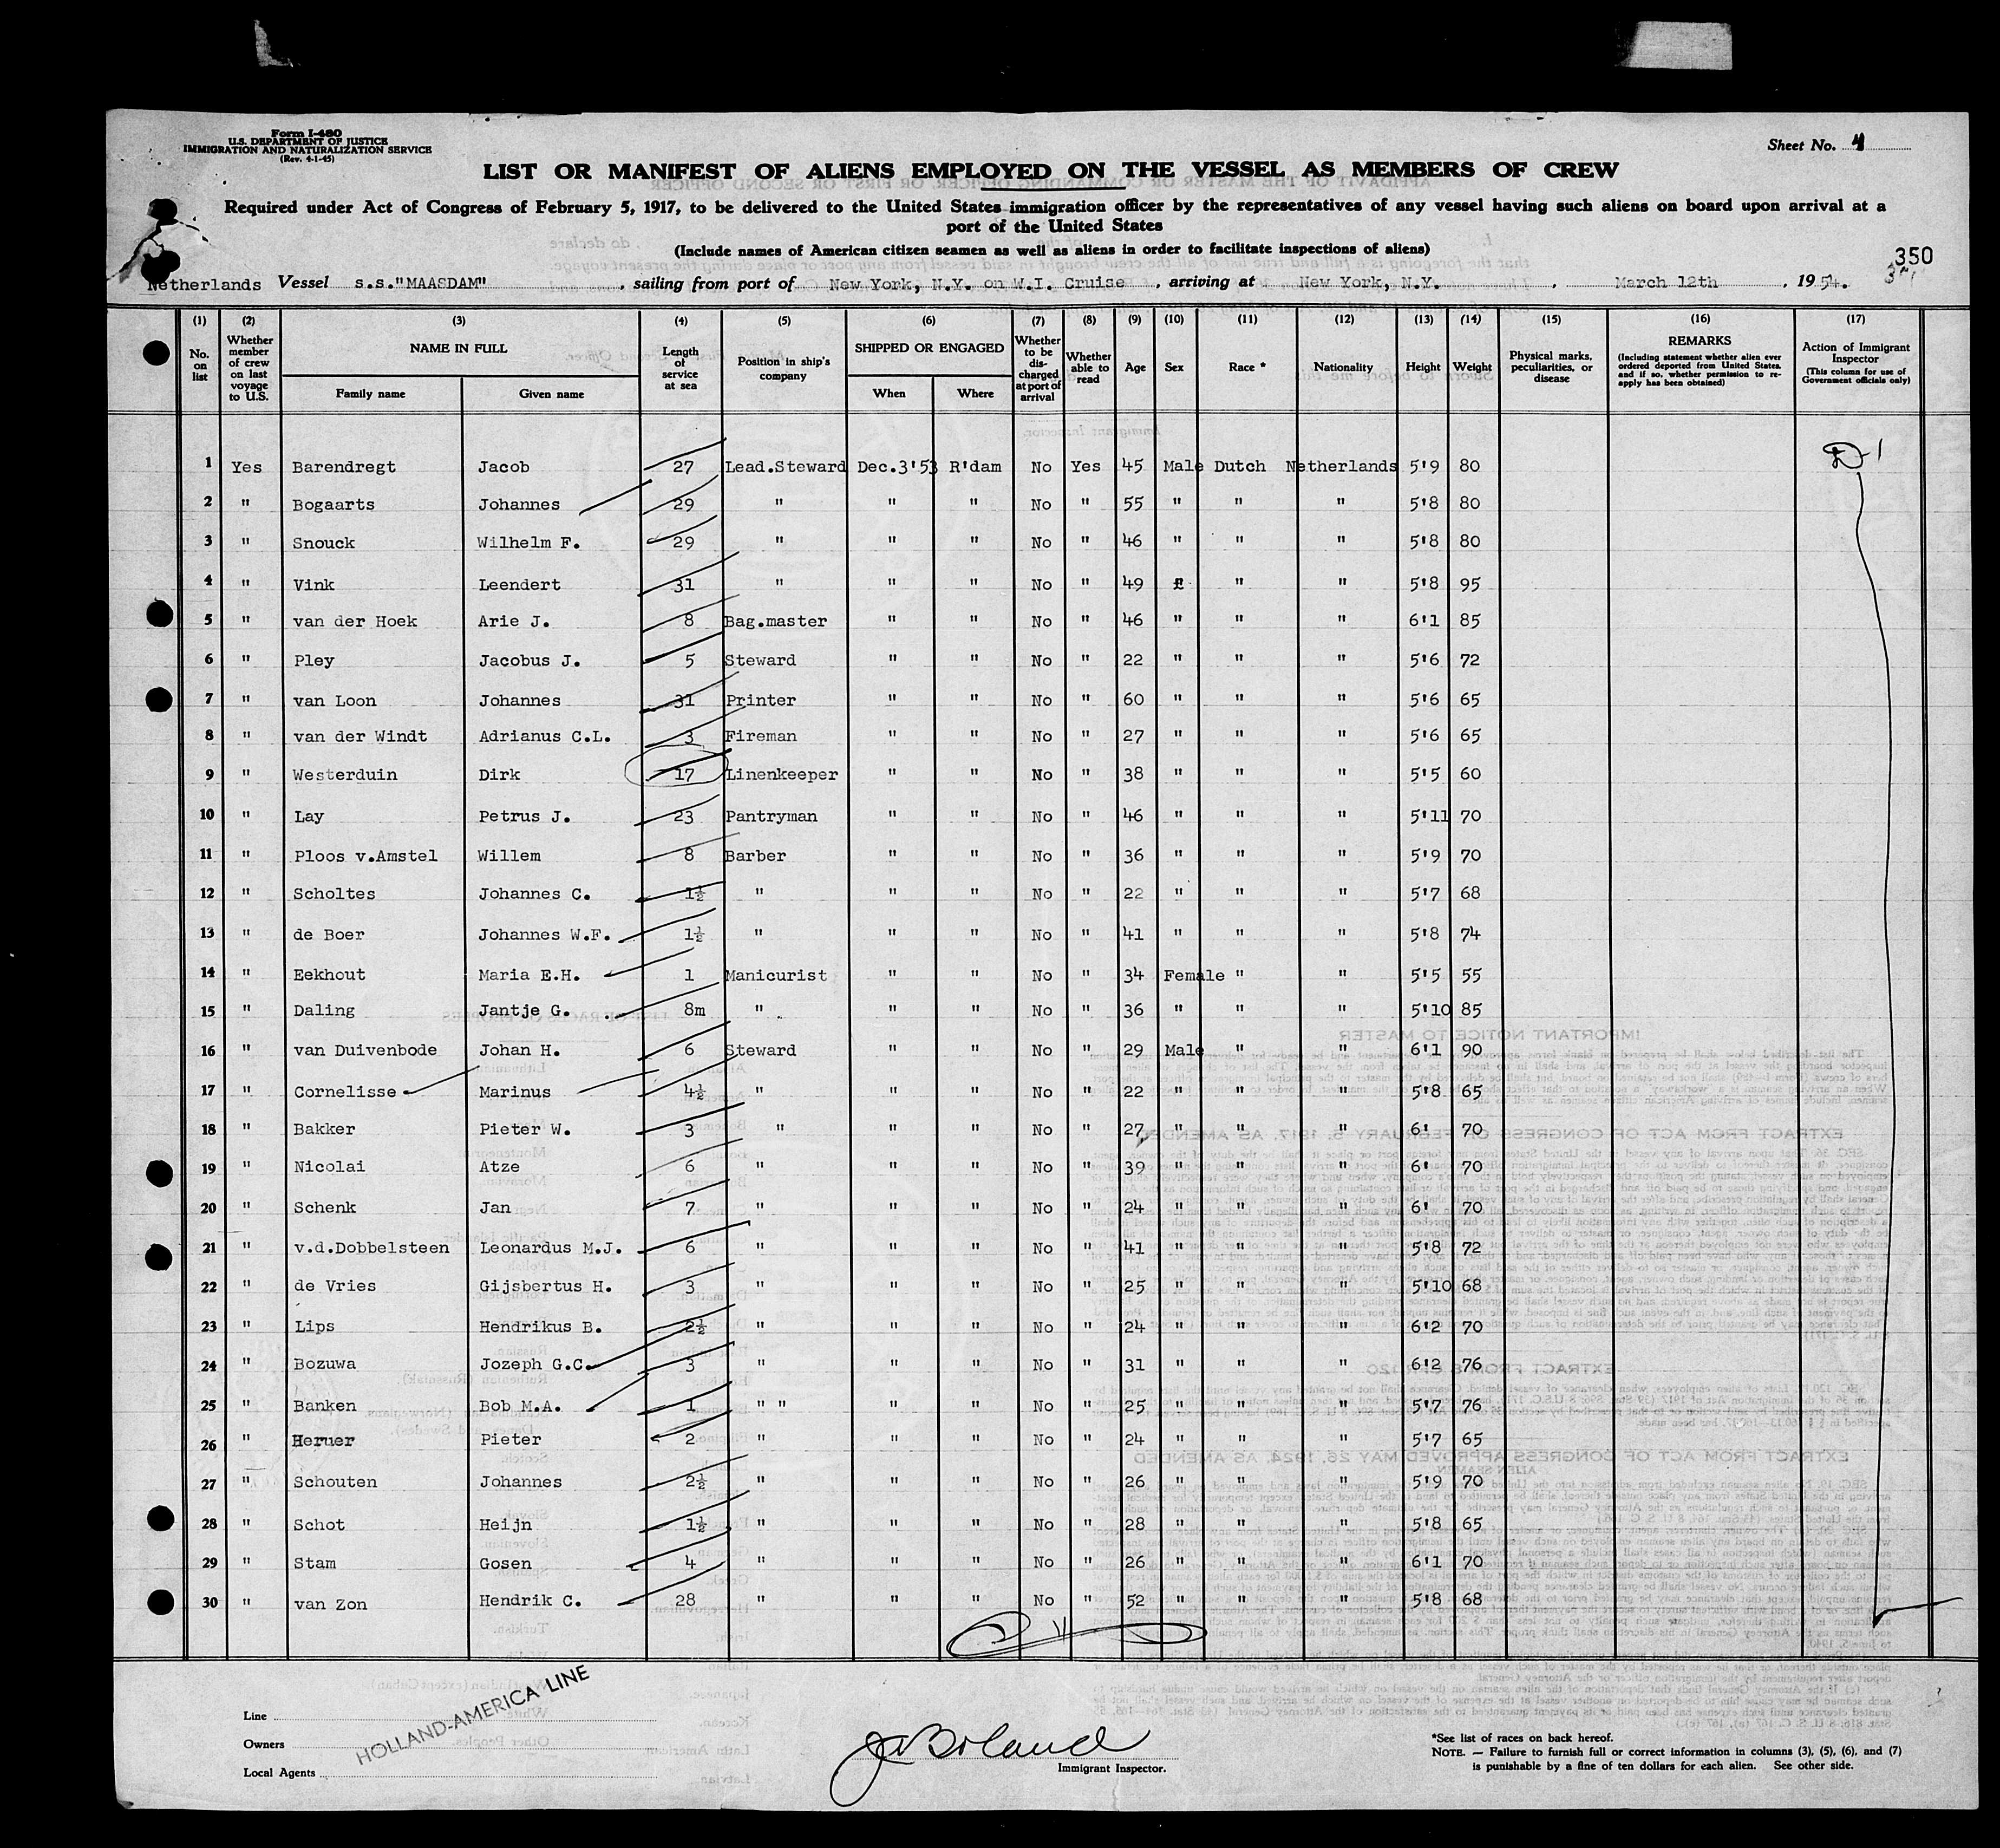 Form I-480
U.S. DEPARTMENT OF JUSTICE
IMMIGRATION AND NATURALIZATION SERVICE
(Rev. 4-1-45)
Sheet No. 4
LIST OR MANIFEST OF ALIENS EMPLOYED ON THE VESSEL AS MEMBERS OF CREW
Required under Act of Congress of February 5, 1917, to be delivered to the United States immigration officer by the representatives of any vessel having such aliens on board upon arrival at a
port of the United States
(Include names of American citizen seamen as well as aliens in order to facilitate inspections of aliens)
350
Netherlands Vessel s.s."MAASDAM", sailing from port of New York, N.Y. on W.I. Cruise, arriving at New York, N.Y., March 12th, 1954.
(1) (2) (3) (4) (5) (6) (7) (8) (9) (10) (11) (12) (13) (14) (15) (16) (17)
No. on list
Whether member of crew on last voyage to U.S.
NAME IN FULL
Family name
Given name
Length of service at sea
Position in ship's company
SHIPPED OR ENGAGED
When
Where
Whether to be discharged at port of arrival
Whether able to read
Age
Sex
Race *
Nationality
Height
Weight
Physical marks, peculiarities, or disease
REMARKS
(Including statement whether alien ever ordered deported from United States, and if so, whether permission to reapply has been obtained)
Action of Immigrant Inspector
(This column for use of Government officials only)
1 Yes Barendregt Jacob 27 Lead.Steward Dec.3'53 R'dam No Yes 45 Male Dutch Netherlands 5'9 80
2 " Bogaarts Johannes 29 " " " No " 55 " " " 5'8 80
3 " Snouck Wilhelm F. 29 " " " No " 46 " " " 5'8 80
4 " Vink Leendert 31 " " " No " 49 " " 5'8 95
5 " van der Hoek Arie J. 8 Bag.master " " No " 46 " " " 6'1 85
6 " Pley Jacobus J. 5 Steward " " No " 22 " " " 5'6 72
7 " van Loon Johannes 31 Printer " " No " 60 " " " 5'6 65
8 " van der Windt Adrianus C.L. 3 Fireman " " No " 27 " " " 5'6 65
9 " Westerduin Dirk 17 Linenkeeper " " No " 38 " " " 5'5 60
10 " Lay Petrus J. 23 Pantryman " " No " 46 " " " 5'11 70
11 " Ploos v.Amstel Willem 8 Barber " " No " 36 " " " 5'9 70
12 " Scholtes Johannes C. 1½ " " " No " 22 " " " 5'7 68
13 " de Boer Johannes W.F. 1½ " " " No " 41 " " " 5'8 74
14 " Eekhout Maria E.H. 1 Manicurist " " No " 34 Female " " 5'5 55
15 " Daling Jantje G. 8m " " " No " 36 " " " 5'10 85
16 " van Duivenbode Johan H. 6 Steward " " No " 29 Male " " 6'1 90
17 " Cornelisse Marinus 4½ " " " No " 22 " " " 5'8 65
18 " Bakker Pieter W. 3 " " " No " 27 " " " 6' 70
19 " Nicolai Atze 6 " " " No " 39 " " " 6' 70
20 " Schenk Jan 7 " " " No " 24 " " " 6' 70
21 " v.d.Dobbelsteen Leonardus M.J. 6 " " " No " 41 " " " 5'8 72
22 " de Vries Gijsbertus H. 3 " " " No " 25 " " " 5'10 68
23 " Lips Hendrikus B. 2½ " " " No " 24 " " " 6'2 70
24 " Bozuwa Jozeph G.C. 3 " " " No " 31 " " " 6'2 76
25 " Banken Bob M.A. 1 " " " " No " 25 " " " 5'7 76
26 " Heruer Pieter 2 " " " No " 24 " " " 5'7 65
27 " Schouten Johannes 2½ " " " No " 26 " " " 5'9 70
28 " Schot Heijn 1½ " " " No " 28 " " " 5'8 65
29 " Stam Gosen 4 " " " No " 26 " " " 6'1 70
30 " van Zon Hendrik C. 28 " " " No " 52 " " " 5'8 68
Line
Owners
Local Agents
HOLLAND-AMERICA LINE
Immigrant Inspector.
*See list of races on back hereof.
NOTE. — Failure to furnish full or correct information in columns (3), (5), (6), and (7)
is punishable by a fine of ten dollars for each alien. See other side.